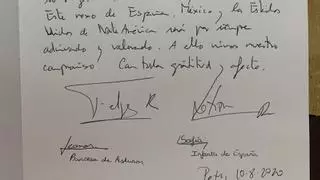 Este ramo de España, México, y los Estados
Unidos de Norte América será por siempre
admirado y valorado. A ello vimos nuestro
compromiso Con toda gratitud y afecto.
Felipe R
Letizia R
Leonor
Sofía
Princesa de Asturias
Infanta de España
10.8.2020